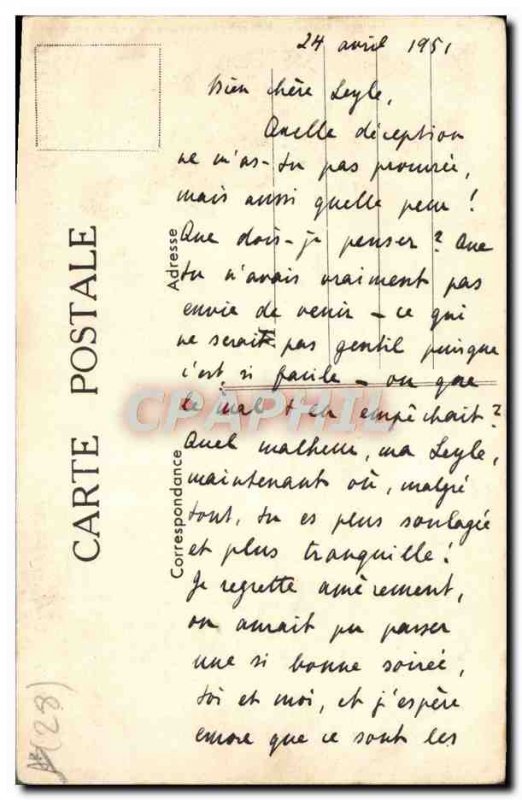 24 avril 1951
Bien chère Leyle,
Quelle déception
ne m'as-tu pas procurée,
mais aussi quelle peur !
Que dois-je penser ? Que
tu n'avais vraiment pas
envie de venir - ce qui
ne serait pas gentil puisque
c'est si facile - ou que
le mal t'en empêchait ?
Quel malheur, ma Leyle,
maintenant où, malgré
tout, tu es plus soulagée
et plus tranquille !
Je regrette amèrement,
on aurait pu passer
une si bonne soirée,
toi et moi, et j'espère
encore que ce sont les
CARTE POSTALE
Adresse
Correspondance
CPAPHIL
(28)